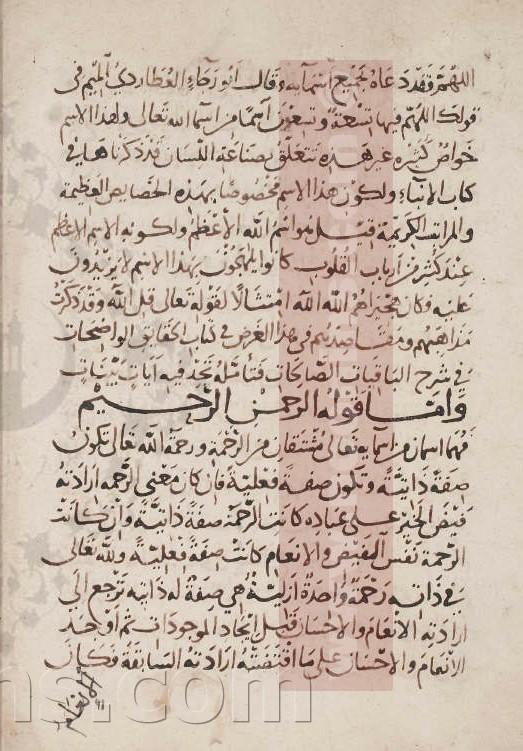 اللهم فقد دعاه بجميع اسمايه وقال ابو رجاء العطاردي الميم في
قولك اللهم فيها تسعة وتسعون اسما من اسما الله تعالى ولهذا الاسم
خواص كثيره غير هذه تتعلق بصناعة اللسان قد ذكرناها في
كتاب الانباء ولكون هذا الاسم مخصوصا بهذه الخصايص العظيمة
والمراتب الكريمة قيل هو اسم الله الأعظم ولكونه الاسم الاعظم
عند كثير من ارباب القلوب كانوا يلهجون بهذا الاسم لا يزيدون
عليه وكان هجيراهم الله الله امتثالا لقوله تعالى قل الله وقد ذكرت
مذاهبهم ومقاصدهم في هذا الغرض في كتاب الحقايق الواضحات
في شرح الباقيات الصالحات فتامله تجد فيه آيات بينات
واما قوله الرحمن الرحيم
فهما اسمان من اسمايه تعالى مشتقان من الرحمة ورحمة الله تعالى تكون
صفة ذاتية وتكون صفة فعلية فان كان معنى الرحمه ارادته
فيض الخير على عباده كانت الرحمة صفة ذاتية وان كانت
الرحمة نفس الفيض والانعام كانت صفة فعلية ولله تعالى
في ذاته رحمة واحدة ازلية هي صفة له ذاتيه ترجع الى
ارادته الانعام والاحسان قبل ايجاد الموجودات ثم اوجد
الانعام والاحسان على ما اقتضته ارادته السابقة فكان
ns.com